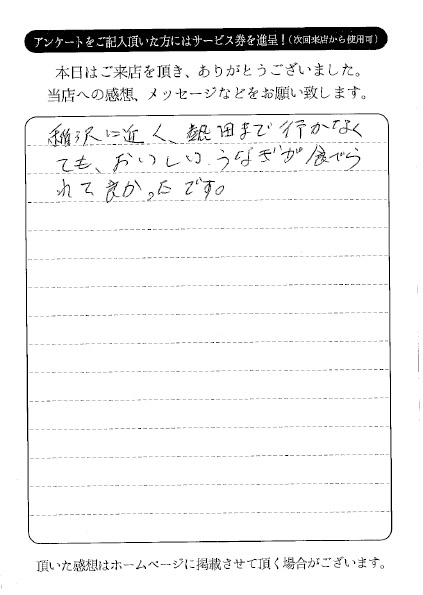 アンケートをご記入頂いた方にはサービス券を進呈！(次回来店から使用可)
本日はご来店を頂き、ありがとうございました。
当店への感想、メッセージなどをお願い致します。
稲沢に近く、熱田まで行かなく
ても、おいしいうなぎが食べら
れて良かったです。
頂いた感想はホームページに掲載させて頂く場合がございます。